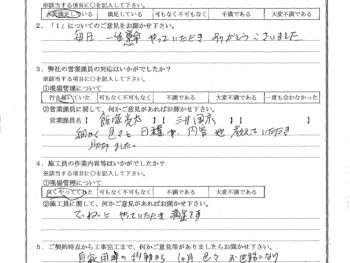 ※該当する項目に○を記入して下さい。
大変満足している 満足している 可もなく不可もなく 不満である 大変不満である
2.「1」についてのご意見をお聞かせ下さい。
毎日 一生懸命 やっていただき ありがとうございました。
3. 弊社の営業課員の対応はいかがでしたか?
※該当する項目に○を記入して下さい。
①現場管理について
行き届いていた 可もなく不可もなく 不満である 大変不満である 一度も会わなかった
②営業課員に関して、何かご意見があればお聞かせ下さい。
営業課員名【 】【 】
細かく 色々と 日程や、内容を 教えていただき
助かりました。
4. 施工員の作業内容等はいかがでしたか?
※該当する項目に○を記入して下さい。
①現場管理について
良くやってくれた 可もなく不可もなく 不満である 大変不満である
②施工員に関して、何かご意見があればお聞かせ下さい。
ていねいに やっていただき 満足です
5. ご契約時点から工事完工まで、何かご意見等がありましたらお聞かせ下さい。
1ヶ月 色々 お世話になり